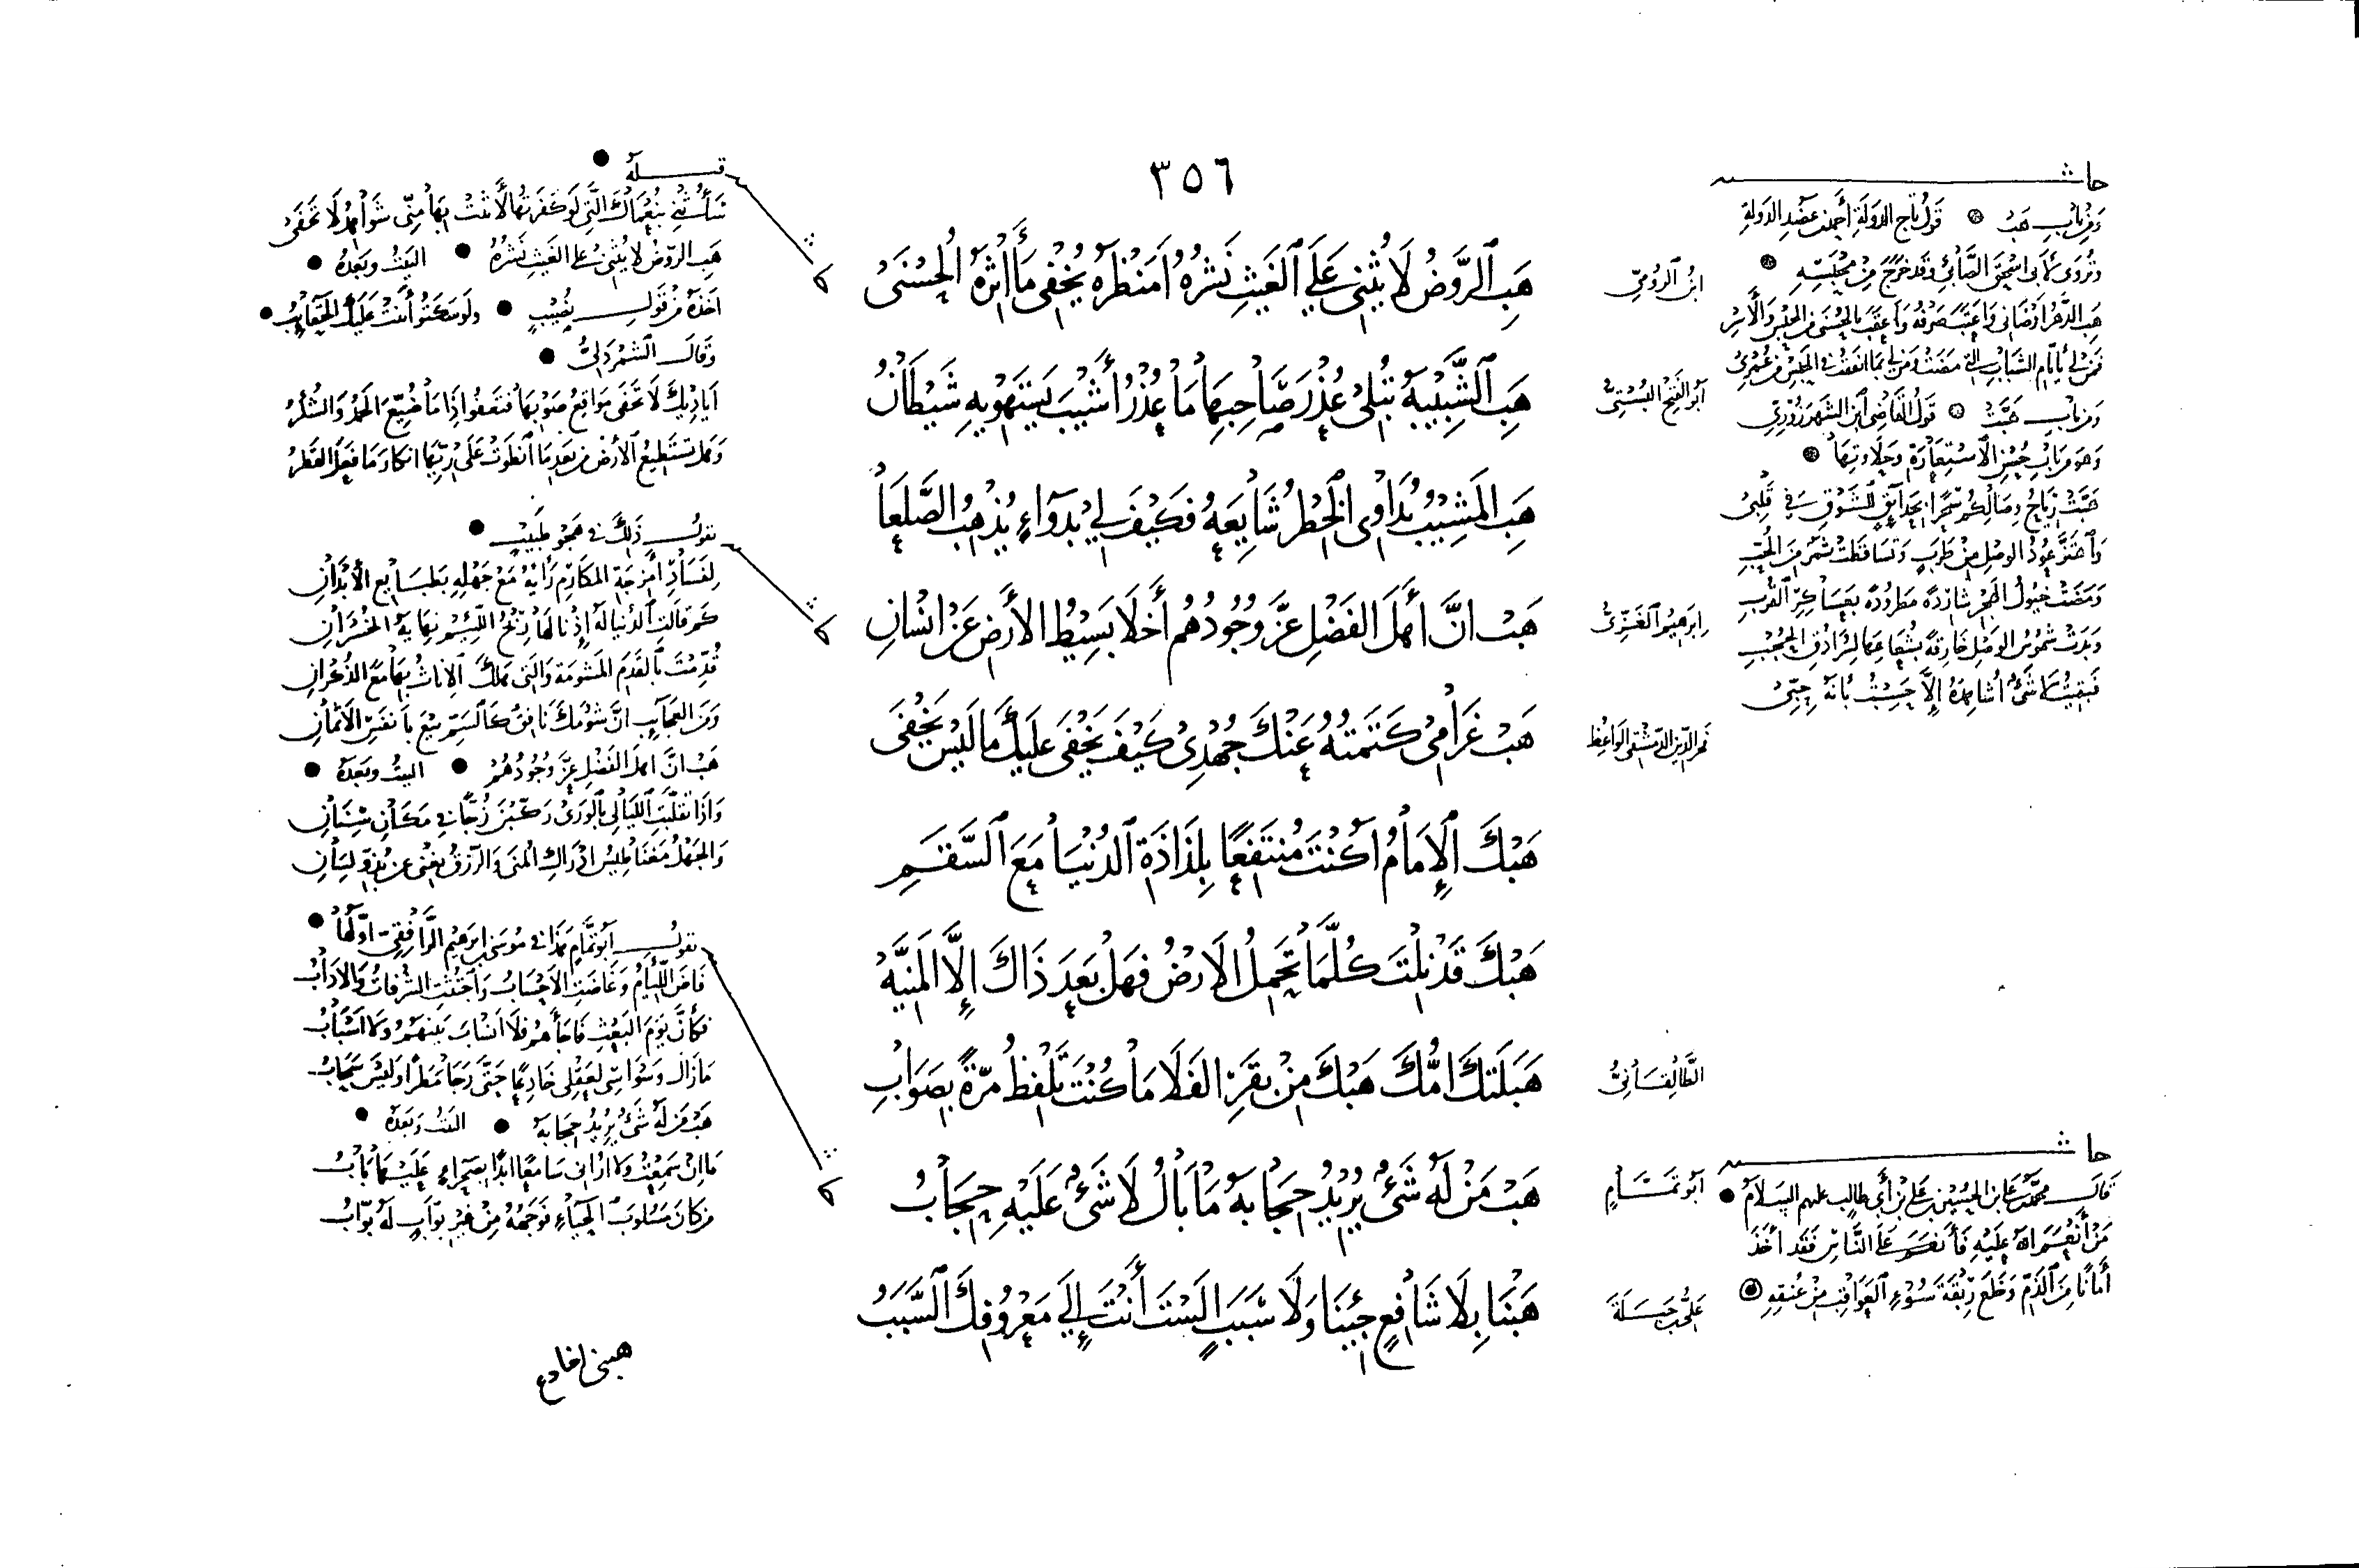 ٣٥٦
حاشـ
ومن باب هب قول تاج الدولة أحمد بن عضد الدولة
وتروى لأبي اسحق الصابئ وقد خرج من محبسه
هب الدهر أرضاني وأعتب صرفه وأعقب بالحسنى من الحبس والأسر
فمن لي بأيام الشباب التي مضت ومن لي بما انفقت في الحبس من عمري
ومن باب هبت قول القاضي ابن الشهرزوري
وهو من باب حسن الاستعارة وحلاوتها
هبت رياح وصالكم سحرا بحدائق للشوق في قلبي
واهتز عود الوصل من طرب وتساقطت ثمر من الحب
ومضت خيول الهجر شاردة مطرودة بعساكر القرب
وبدت شموس الوصل خارقة بشعاعها لسرادق الحجب
فبقيت لا شيء أشاهده إلا حسبت بانه حبي
ابن الرومي
هَبِ الرَّوْضُ لَا يُثْنِي عَلَى الغَيْثِ نَشْرُهُ أَمَنْظَرُهُ يُخْفِي مَأَاثِرَهُ الحُسْنَى
أبو الفتح البستي
هَبِ الشَّبِيْبَةُ تُبْلِي عُذْرَ صَاحِبِهَا مَا عُذْرُ أَشْيَبَ يَسْتَهْوِيهِ شَيْطَانُ
هَبِ المَشِيْبَ يُدَاوِي الخِطْرُ شَايِعَهُ فَكَيْفَ لِي بِدَوَاءٍ يُذْهِبُ الصَّلَعَا
إبراهيم الغزي
هَبْ انَّ أَهْلَ الفَضْلِ عَزَّ وُجُودُهُم أَخَلَا بَسِيْطُ الأَرْضِ عَنْ انْسَانِ
فخر الدين الدمشقي الواعظ
هَبْ غَرَامِي كَتَمْتُهُ عَنْكَ جُهْدِي كَيْفَ يَخْفَى عَلَيْكَ مَا لَيْسَ يَخْفَى
هَبْكَ الإِمَامُ أَكُنْتَ مُنْتَفِعًا بِلَذَاذَةِ الدُنْيَا مَعَ السَّقَمِ
هَبْكَ قَدْ نِلْتَ كُلَّمَا تَحْمِلُ الأَرْضُ فَهَلْ بَعْدَ ذَاكَ إِلَّا المَنِيَّهْ
الطالقاني
هَبَلَتْكَ أُمُّكَ هَبْكَ مِنْ بَقَرِ الفَلَا مَا كُنْتَ تَلْفِظُ مَرَّةً بِصَوَابِ
أبو تمام
هَبْ مَنْ لَهُ شَيْءٌ يُرِيْدُ حِجَابَهُ مَا بَالُ لَا شَيْءٌ عَلَيْهِ حِجَابُ
علي بن جبلة
هَبْنَا بِلَا شَافِعٍ جِئْنَا وَلَا سَبَبٍ أَلَسْتَ أَنْتَ إِلَى مَعْرُوفِكَ السَّبَبُ
حاشـ
قال محمد بن علي بن الحسين بن علي بن أبي طالب عليهم السلام
من أنعم الله عليه فأنعم على الناس فقد أخذ
أمانًا من الذم وخلع ربقة سوء العواقب من عنقه
قبله
سأثني بنعماك التي لو كفرتها لأثنت بها مني شواهد لا تخفى
هب الروض لا يثني على الغيث نشره البيت وبعده
أخذه من قول نصيب ولو سكتوا أثنت عليك الحقايب
وقال الشمردلي
أياديك لا تخفى مواقع صوبها فتعفوا إذا ما ضيع الحمد والشكر
وهل تستطيع الأرض من بعد ما انطوت على ريها انكار ما فعل القطر
يقول ذلك في هجو طبيب
لفساد أمزجة المكارم رأيه مع جهله بطبايع الأبدان
كم قالت الدنيا له إذنا لها ربح اللئيم نهاية الخسران
قدمت بالقدم المشومة والتي هلك الاناث بها مع الذكران
ومن العجايب ان شومك نافق كالسم بيع بأنفس الأثمان
هب ان أهل الفضل عز وجودهم البيت وبعده
وإذا تقلبت الليالي بالورى ركبن زجًا في مكان سنان
والجهل مغناطيس ادراك المنى والرزق يغني عن بذو لسان
يقول أبو تمام هذا في موسى بن إبراهيم الرافقي أولها
فاض اللئام وغاضت الأحساب واجتثت الشرفات والآداب
فكأن يوم البعث فاجأهم فلا أنساب بينهم ولا أسباب
ما زال وسواسي لعقلي خادعًا حتى رجا مطرًا وليس سحاب
هب من له شيء يريد حجابه البيت وبعده
ما ان سمعت ولا أراني سامعًا أبدًا بصحراء عليها باب
من كان مسلوب الحياء فوجهه من غير بواب له بواب